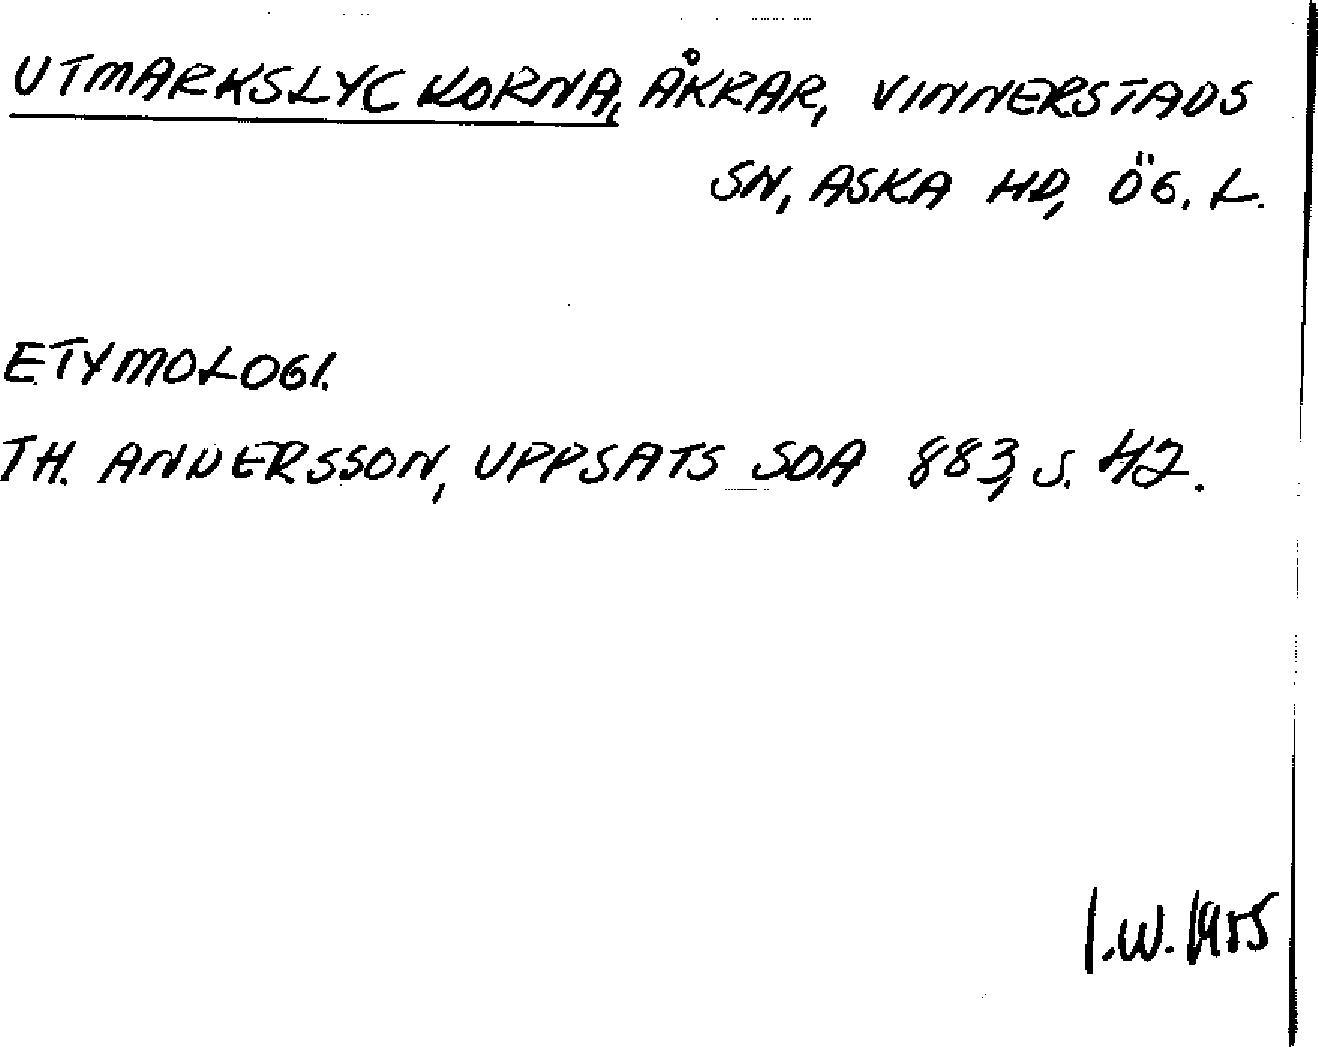 UTMARKSLYCKORNA, ÅKRAR, VINNERSTADS
SN, ASKA HD, ÖG. L.
ETYMOLOGI.
TH. ANDERSSON, UPPSATS SOA 883, S. 42.
I.W. 1955